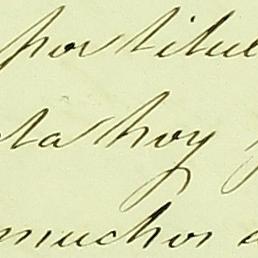 por titul
ta hoy
muchos